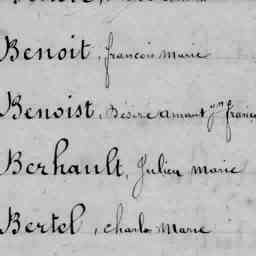 Benoit, francois marie
Benoist, Désiré amant
Berhault, Julien marie
Bertel, charles marie